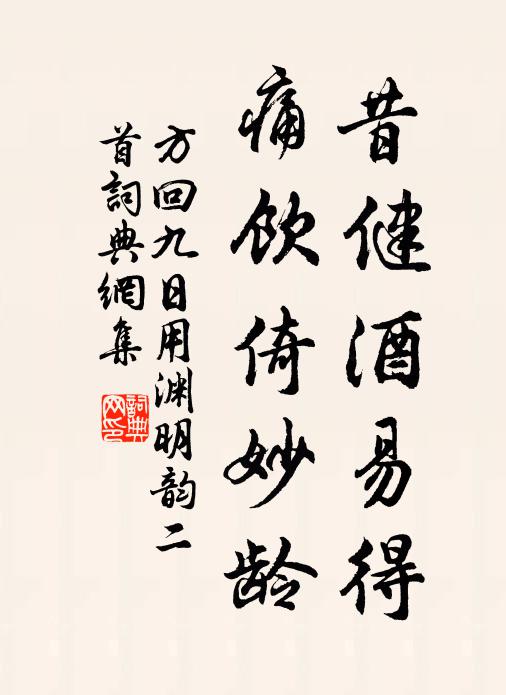 昔健酒易得
痛饮倚妙龄
方回九日用渊明韵二
首詞典網集
詞典网印